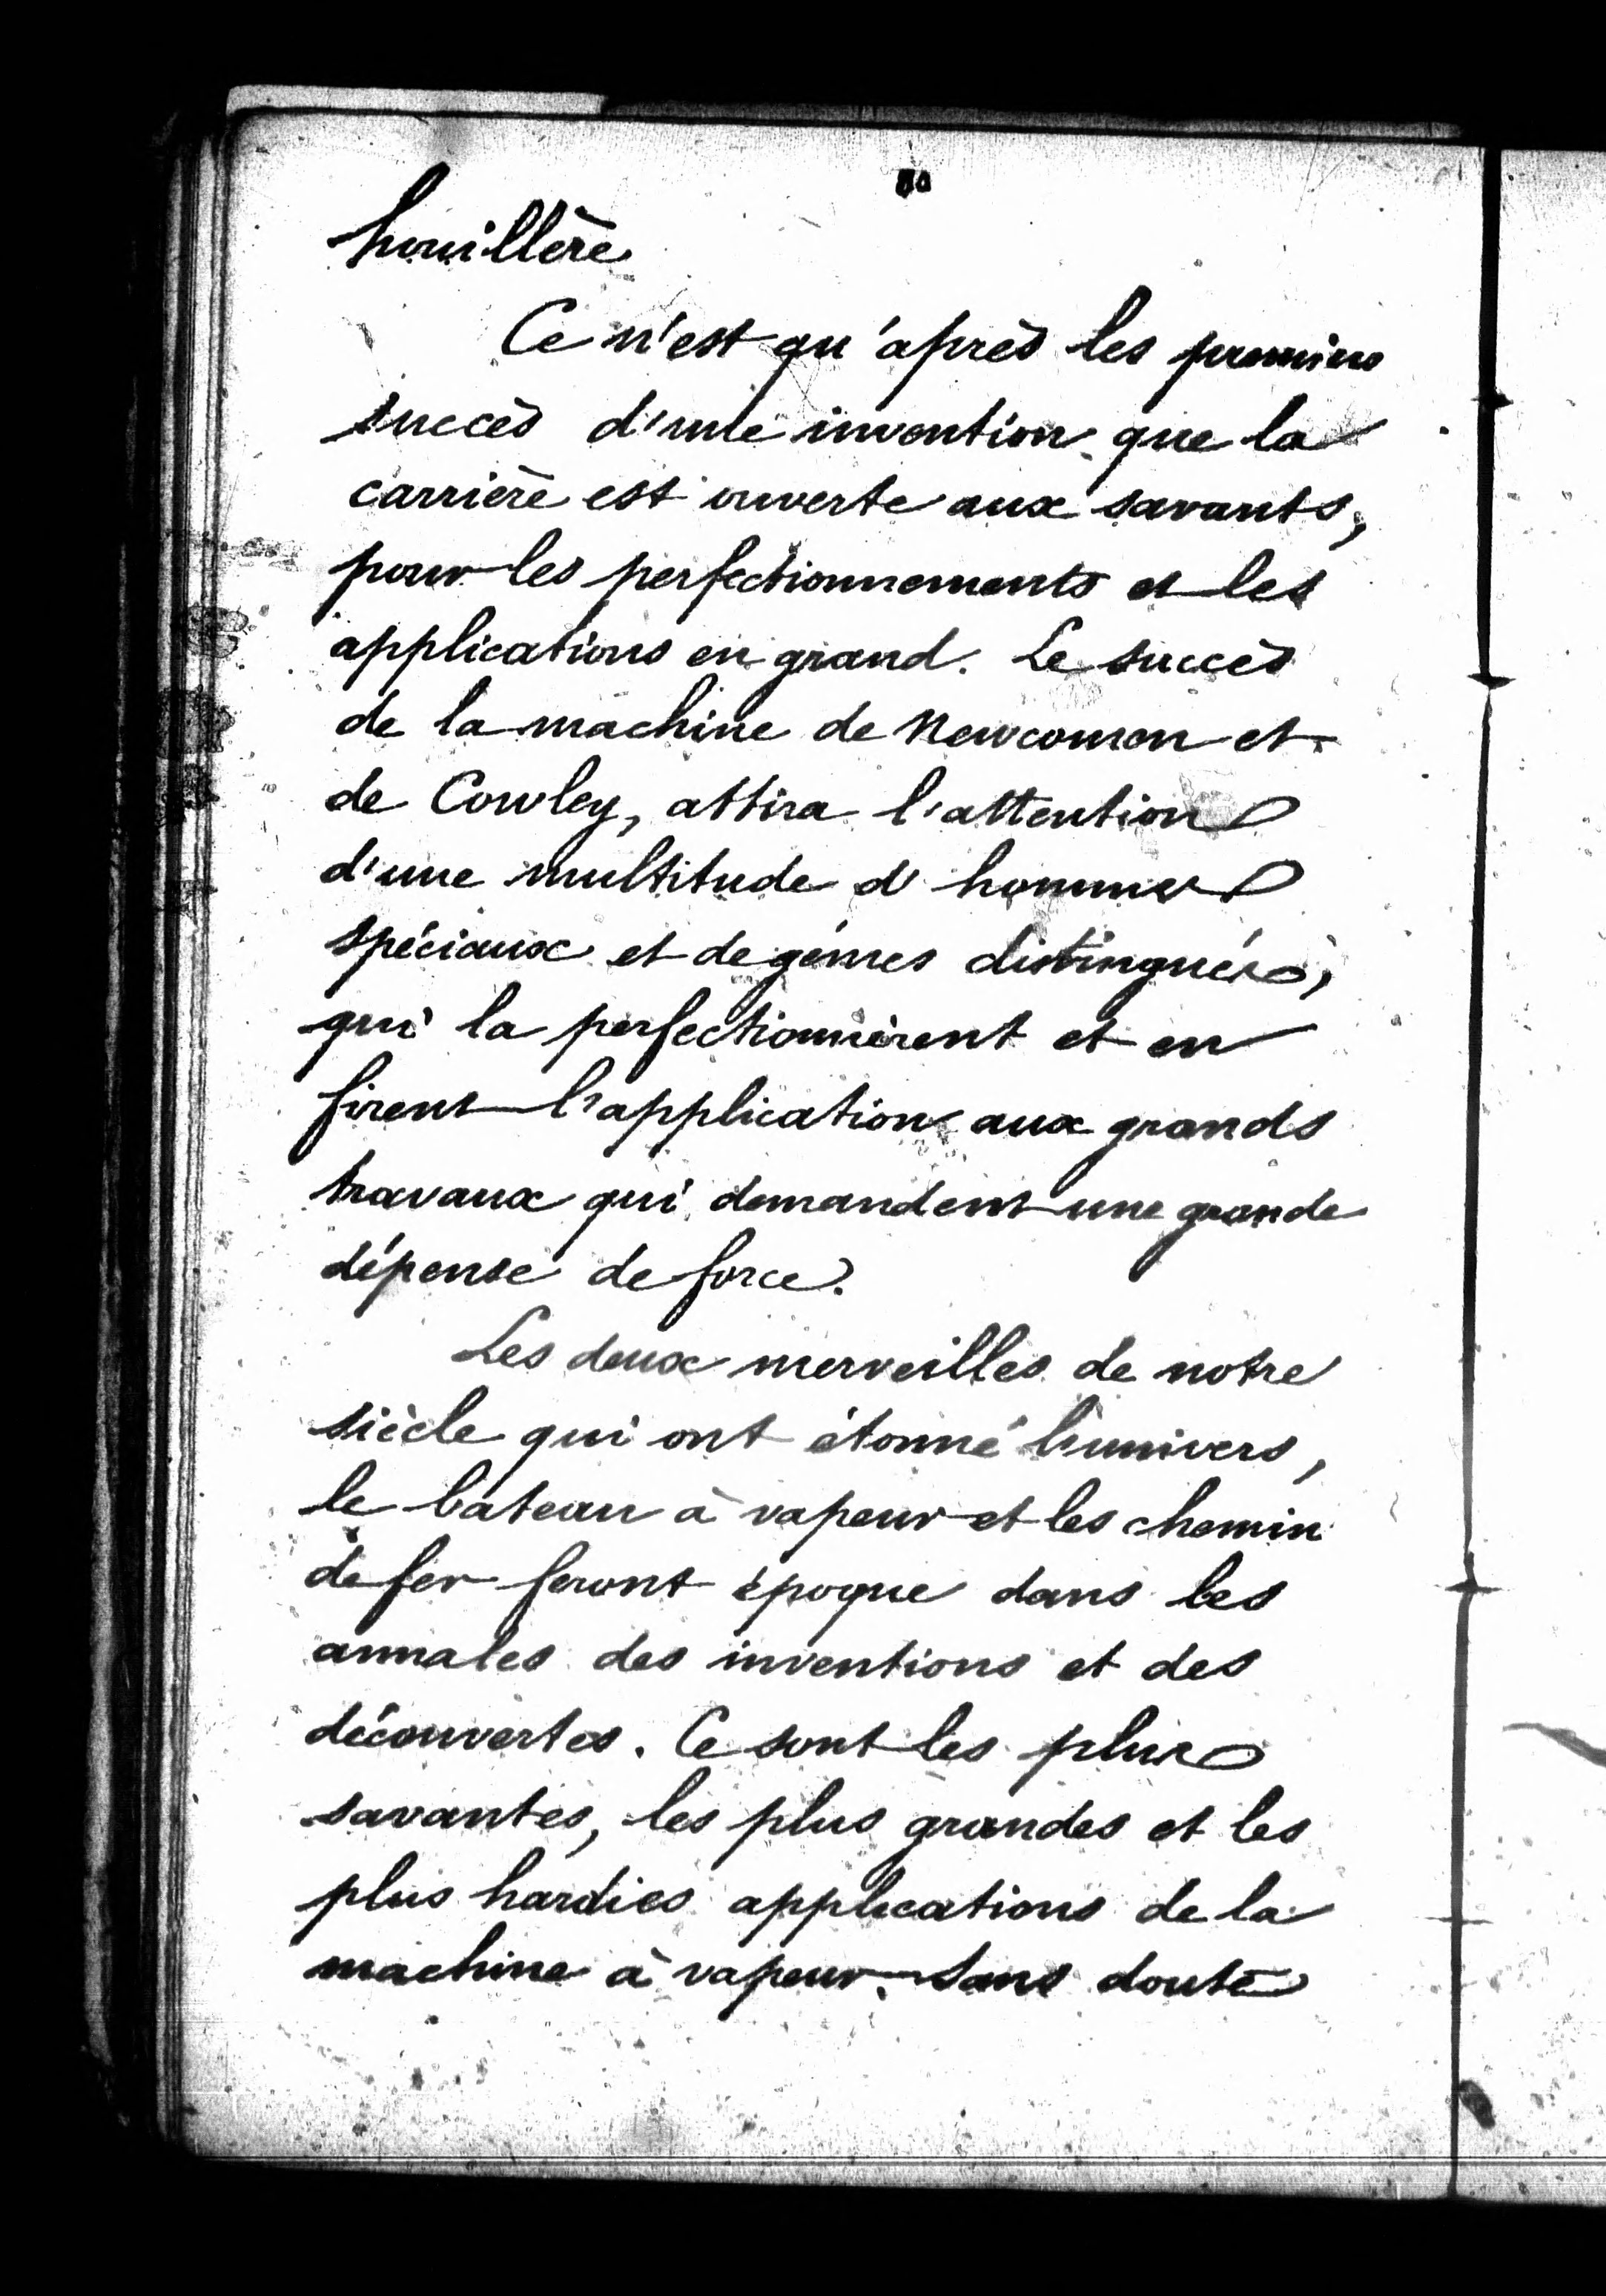 houillère
Ce n'est qu'après les premiers
succès d'une invention que la
carrière est ouverte aux savants,
pour les perfectionnements et les
applications en grand. Le succès
de la machine de Newcomen et
de Cowley, attira l'attention
d'une multitude d'hommes
spéciaux et de génies distingués,
qui la perfectionnèrent et en
firent l'application aux grands
travaux qui demandent une grande
dépense de force.
Les deux merveilles de notre
siècle qui ont étonné l'univers,
le bateau à vapeur et les chemin
de fer feront époque dans les
annales des inventions et des
découvertes. Ce sont les plus
savantes, les plus grandes et les
plus hardies applications de la
machine à vapeur. Sans doute